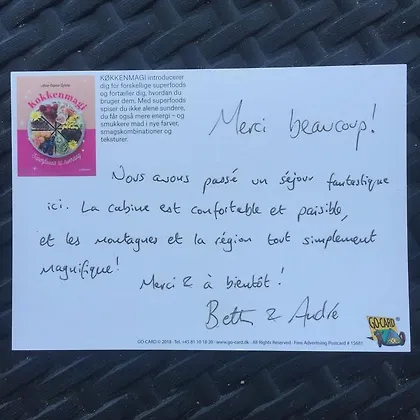 Køkkenmagi
KØKKENMAGI introducerer
dig for forskellige superfoods
og fortæller dig, hvordan du
bruger dem. Med superfoods
spiser du ikke alene sundere,
du får også mere energi – og
smukkere mad i nye farver,
smagskombinationer og
teksturer.
Merci beaucoup!
Nous avons passé un séjour fantastique
ici. La cabine est confortable et paisible,
et les montagnes et la région tout simplement
magnifique!
Merci & à bientôt!
Beth & André
GO-CARD
GO-CARD © 2018 · Tel. +45 81 10 18 20 · www.go-card.dk · All Rights Reserved · Free Advertising Postcard # 15661